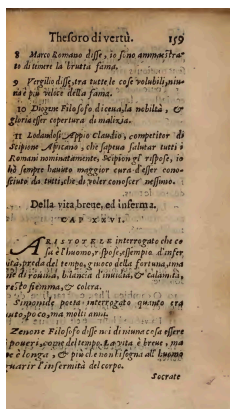 Thesoro di vertù. 159
8 Marco Romano disse, io sono ammaestra-
to di tenere la brutta fama.
9 Vergilio disse, tra tutte le cose volubili, niu-
na è più veloce della fama.
10 Diogene Filosofo diceua, la nobiltà, &
gloria esser copertura di malizia.
11 Lodandosi Appio Claudio, competitor di
Scipione Africano, che sapeua salutar tutti i
Romani nominatamente, Scipion gl' rispose, io
hò sempre hauuto maggior cura d'esser cono-
sciuto da tutti, che di voler conoscer nessuno.
Della vita breue, ed inferma.
CAP XXVI.
ARISTOTELE interrogato che co
sa è l'huomo, rispose, essempio d'infer
tà, preda del tempo, giuoco della fortuna, ima
di rouina, bilancia d'inuidia, & calamità,
resto flemma, & colera.
Simonide poeta interrogato quanto era
uto, poco, ma molti anni.
Zenone Filosofo disse noi di niuna cosa essere
poueri, come del tempo. La vita è breue, ma
è longa, & più che non bisogna all' huomo
guarir l'infermità del corpo.
Socrate